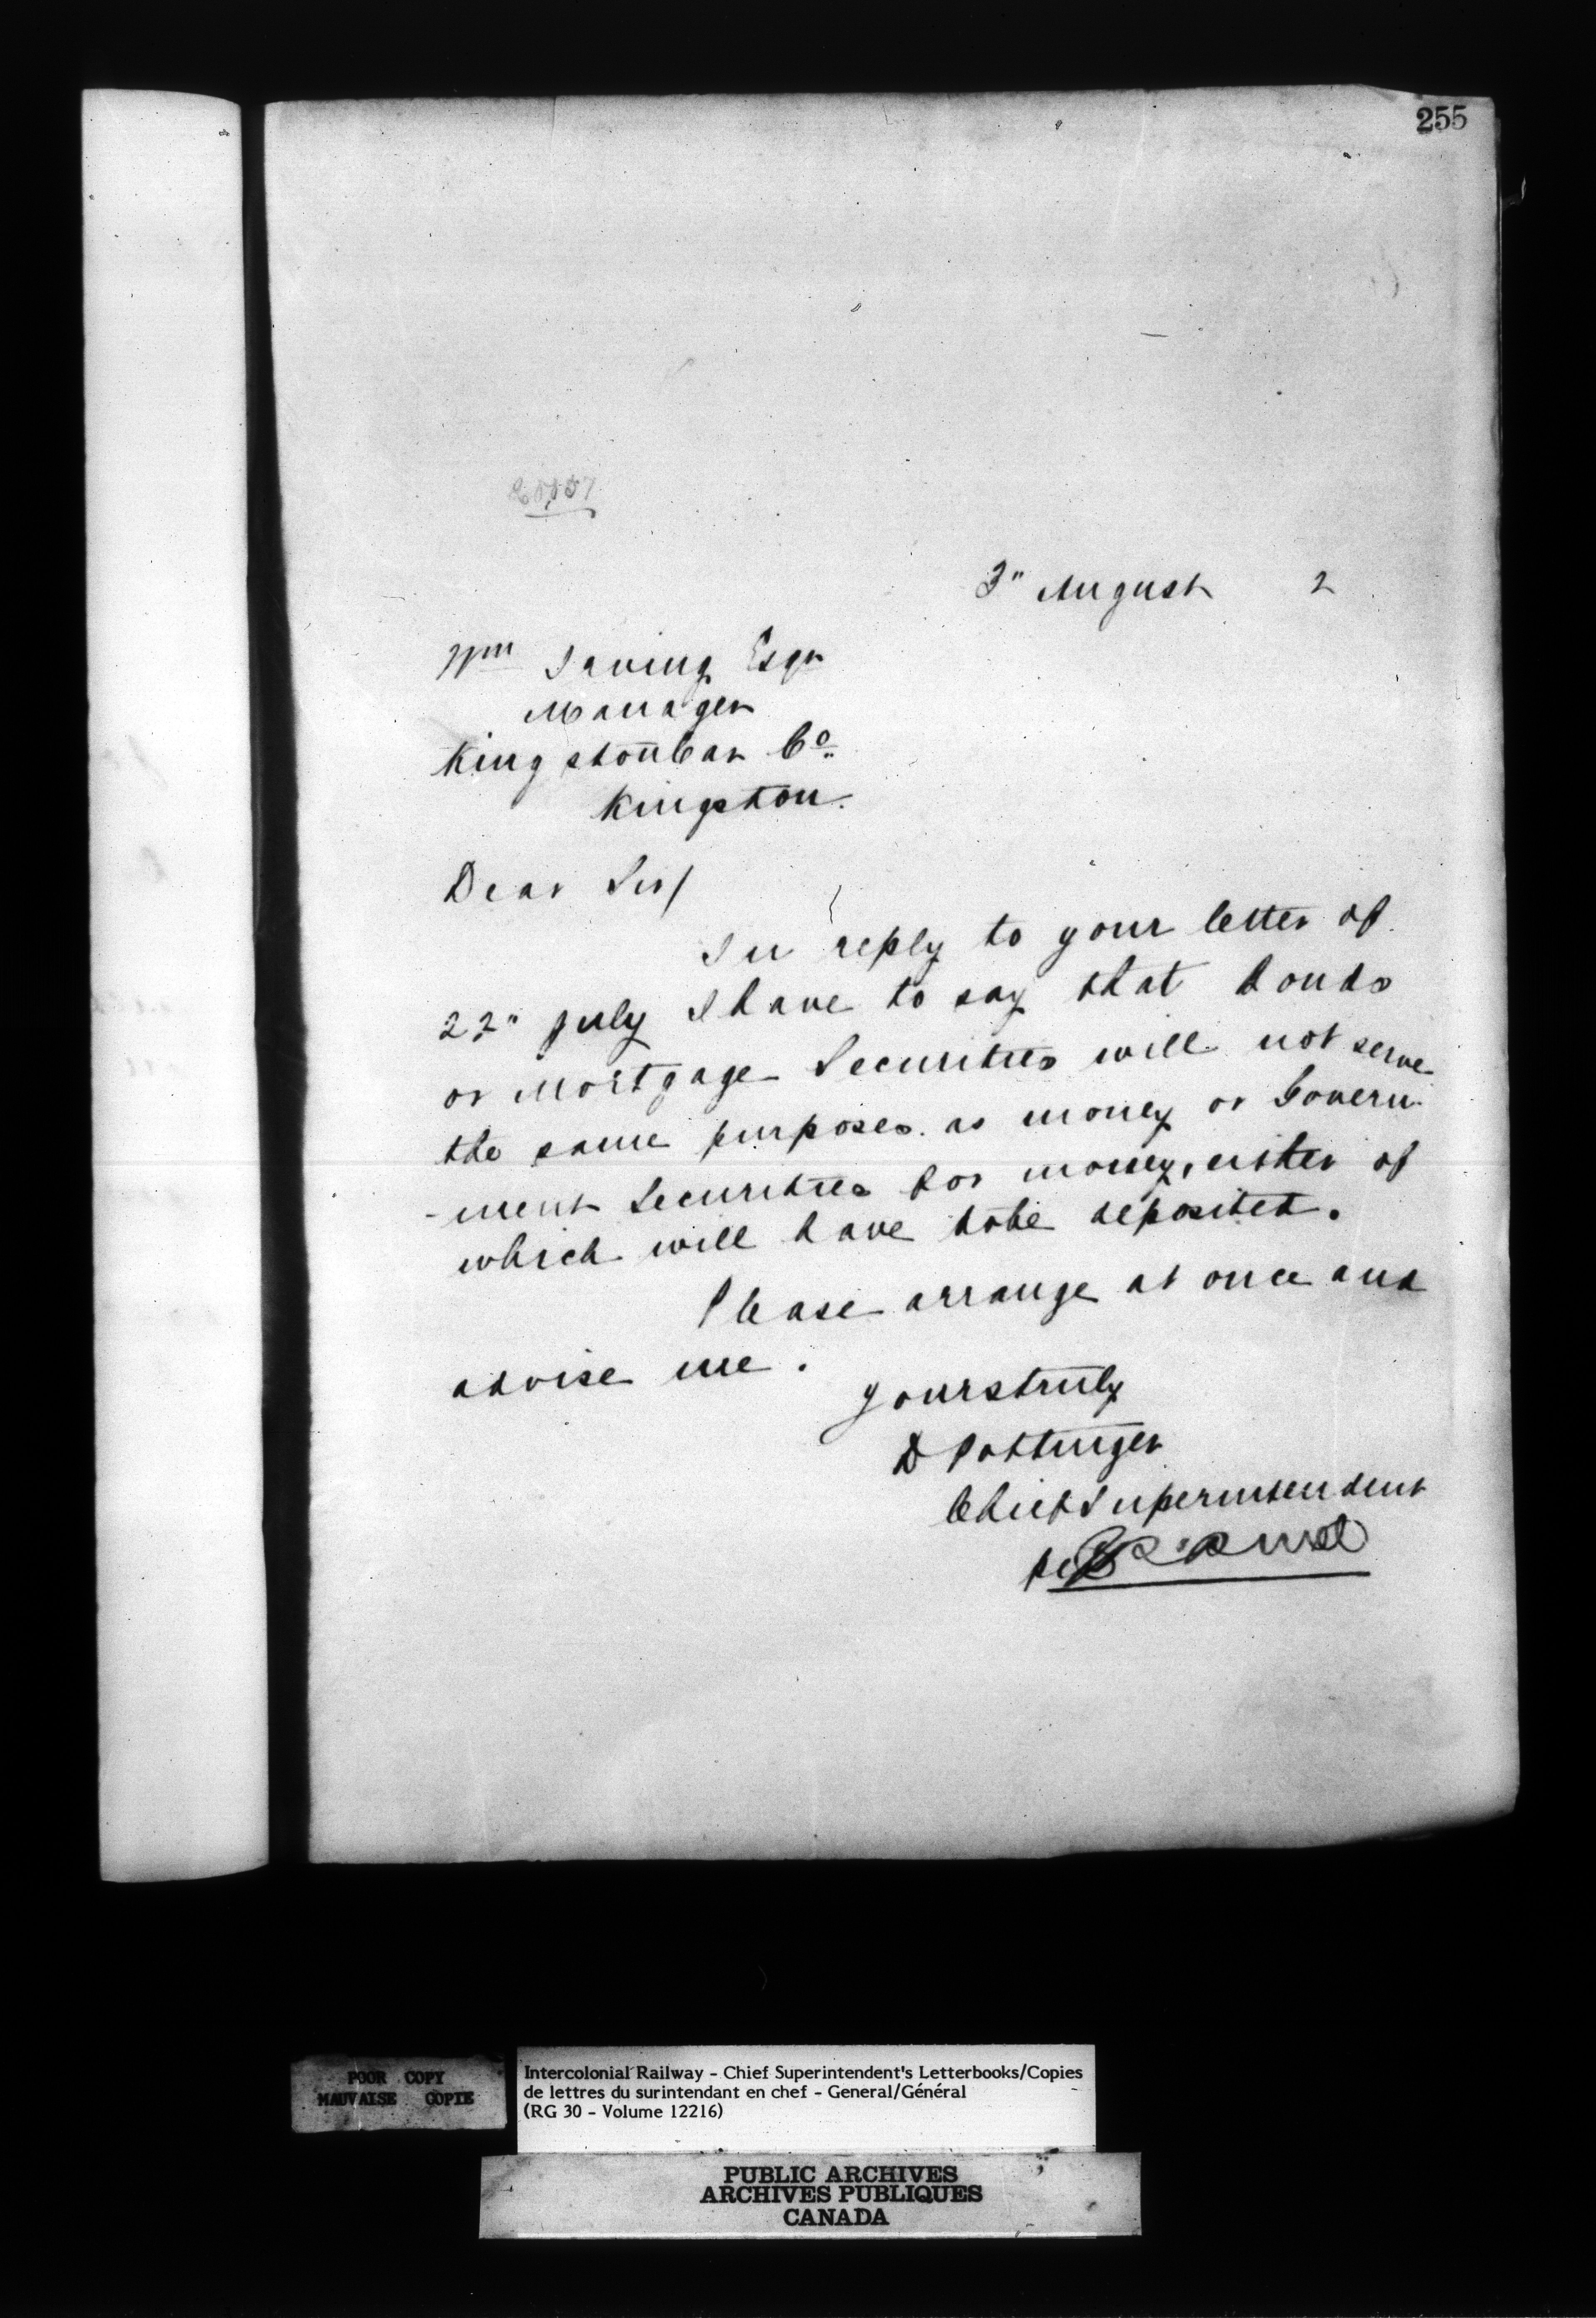 255
3" August 2
Wm Irving Esqr
Manager
Kingston Car Co.
Kingston.
Dear Sir/
In reply to your letter of
22" July I have to say that bonds
or Mortgage Securities will not serve
the same purposes as money or Govern
-ment Securities for money, either of
which will have to be deposited.
Please arrange at once and
advise me.
Yours truly
D Pottinger
Chief Superintendent
POOR COPY
MAUVAISE COPIE
Intercolonial Railway - Chief Superintendent's Letterbooks/Copies
de lettres du surintendant en chef - General/Général
(RG 30 - Volume 12216)
PUBLIC ARCHIVES
ARCHIVES PUBLIQUES
CANADA